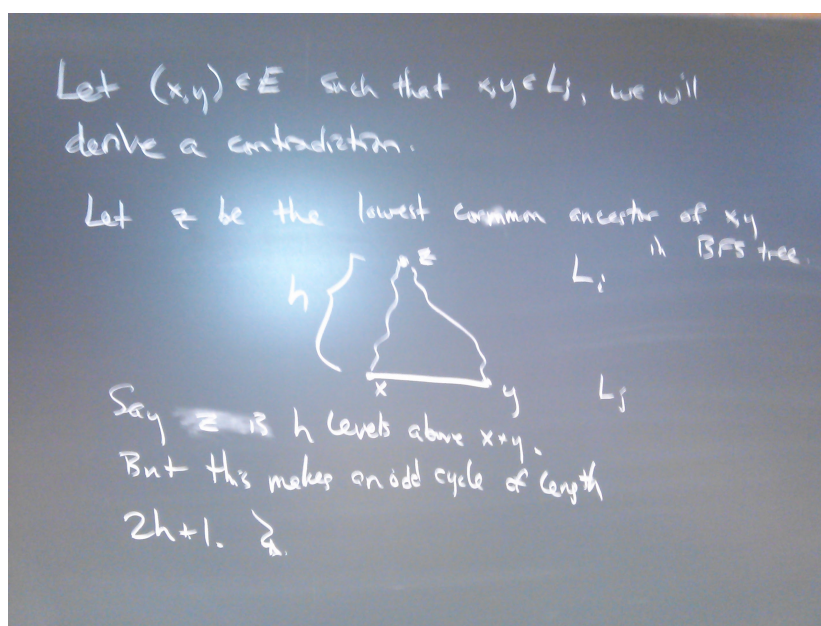 Let (x,y) ∈ E such that x,y ∈ Lj, we will
derive a contradiction.
Let z be the lowest common ancestor of x,y
in BFS tree.
z
Li
h
x
y
Lj
Say z is h levels above x+y.
But this makes an odd cycle of length
2h+1.